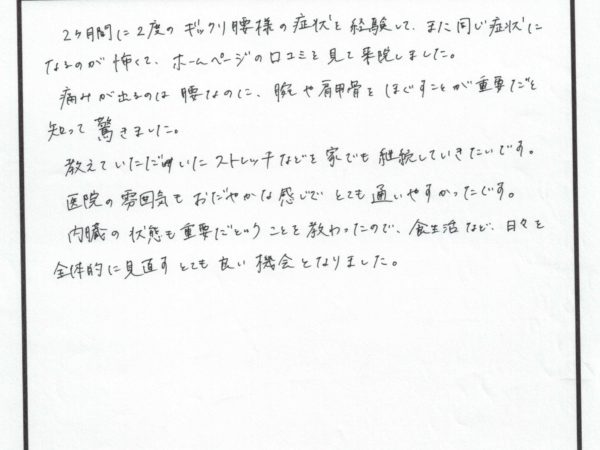 2ヶ月間に2度のギックリ腰様の症状を経験して、また同じ症状に
なるのが怖くて、ホームページの口コミを見て来院しました。
痛みが出るのは腰なのに、腕や肩甲骨をほぐすことが重要だと
知って驚きました。
教えていただいたストレッチなどを家でも継続していきたいです。
医院の雰囲気もおだやかな感じでとても通いやすかったです。
内臓の状態も重要だということを教わったので、食生活など、日々を
全体的に見直すとても良い機会となりました。